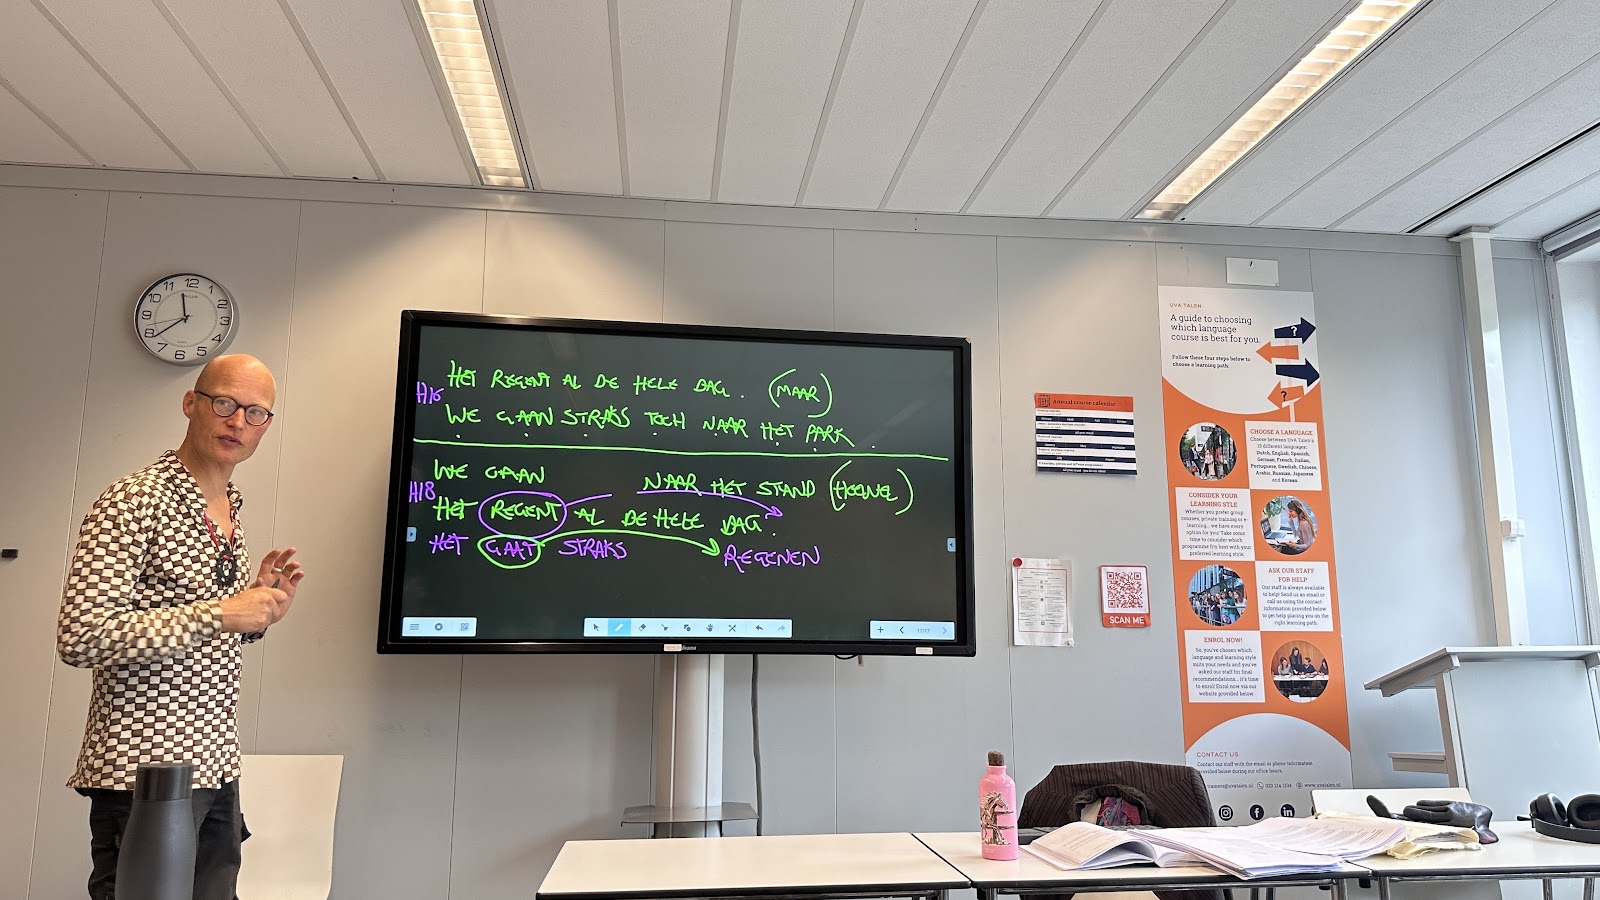 12
11
1
10
2
9
3
8
4
7
5
6
HET REGENT AL DE HELE DAG. (MAAR)
H16
WE GAAN STRAKS TOCH NAAR HET PARK.
WE GAAN NAAR HET STAND (HEUVEL)
H18
HET REGENT AL DE HELE DAG.
HET GAAT STRAKS REGENEN
17/17
Annual course calendar
SCAN ME
UVA TALEN
A guide to choosing
which language
course is best for you.
Follow these four steps below to
choose a learning path:
?
?
CHOOSE A LANGUAGE
Choose between UvA Talen's
13 different languages,
Dutch, English, Spanish,
German, French, Italian,
Portuguese, Swedish, Chinese,
Arabic, Russian, Japanese
and Korean.
CONSIDER YOUR
LEARNING STLE
Whether you prefer group
courses, private training or e-
learning... we have every
option for you! Take some
time to consider which
programme fits best with your
preferred learning style.
ASK OUR STAFF
FOR HELP
Our staff is always available
to help! Send us an email or
call us using the contact
information provided below
to get help placing you on the
right learning path.
ENROL NOW!
So, you've chosen which
language and learning style
suits your needs and you've
asked our staff for final
recommendations... it's time
to enrol! Enrol now via our
website provided below.
CONTACT US
Contact our staff with the email or phone information
provided below during our office hours.
trainers@uvatalen.nl
www.uvatalen.nl